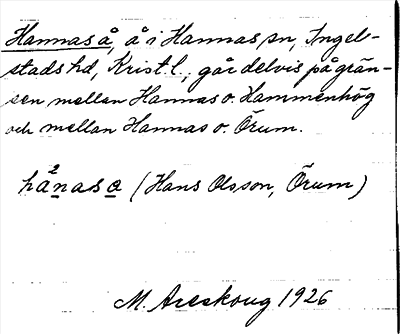 Hannas å, å i Hannas sn, Ingel-
stads hd, Krist. l., går delvis på grän-
sen mellan Hannas o. Hammenhög
och mellan Hannas o. Örum.
hå²nasa (Hans Olsson, Örum)
M. Areskoug 1926